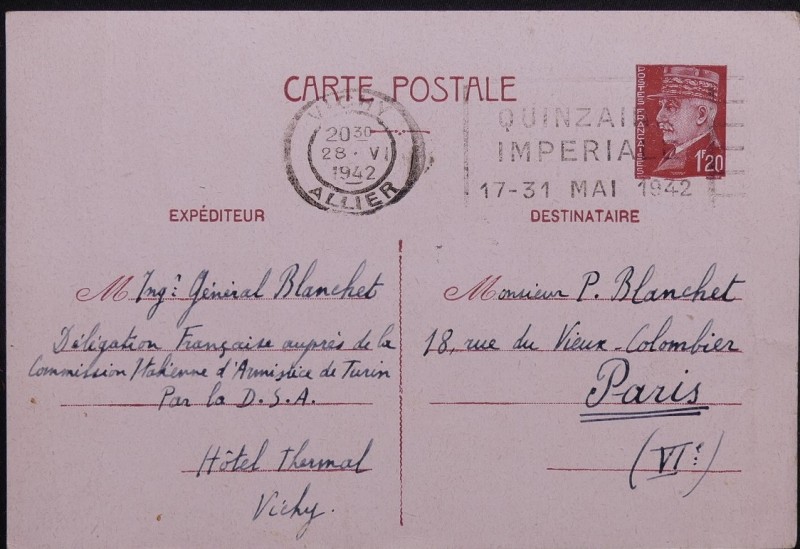 CARTE POSTALE
POSTES FRANÇAISES
1F20
VICHY
20 30
28 · VI
1942
ALLIER
QUINZAI
IMPERIAL
17-31 MAI 1942
EXPÉDITEUR
M Ingr Général Blanchet
Délégation Française auprès de la
Commission Italienne d'Armistice de Turin
Par la D.S.A.
Hôtel Thermal
Vichy.
DESTINATAIRE
Monsieur P. Blanchet
18, rue du Vieux-Colombier
Paris
(VIe)